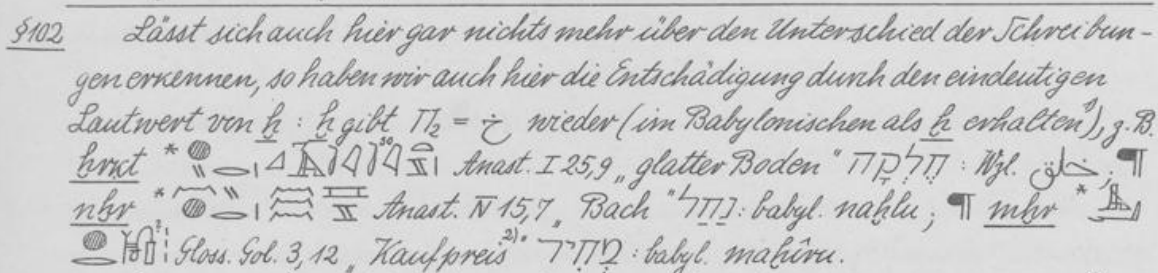 §102 Lässt sich auch hier gar nichts mehr über den Unterschied der Schreibun-
gen erkennen, so haben wir auch hier die Entschädigung durch den eindeutigen
Lautwert von ḫ : ḫ gibt Π₂ = خ wieder (im Babylonischen als ḫ erhalten¹⁾), z.B.
* Anast. I 25,9 „glatter Boden“ חֶלְקָה : Wzl. خلق; ¶
nḫr * Anast. IV 15,7 „Bach“ נַחַל : babyl. naḫlu; ¶ mḫr *
Gloss. Gol. 3,12 „Kaufpreis²⁾“ מְחִיר : babyl. maḫîru.